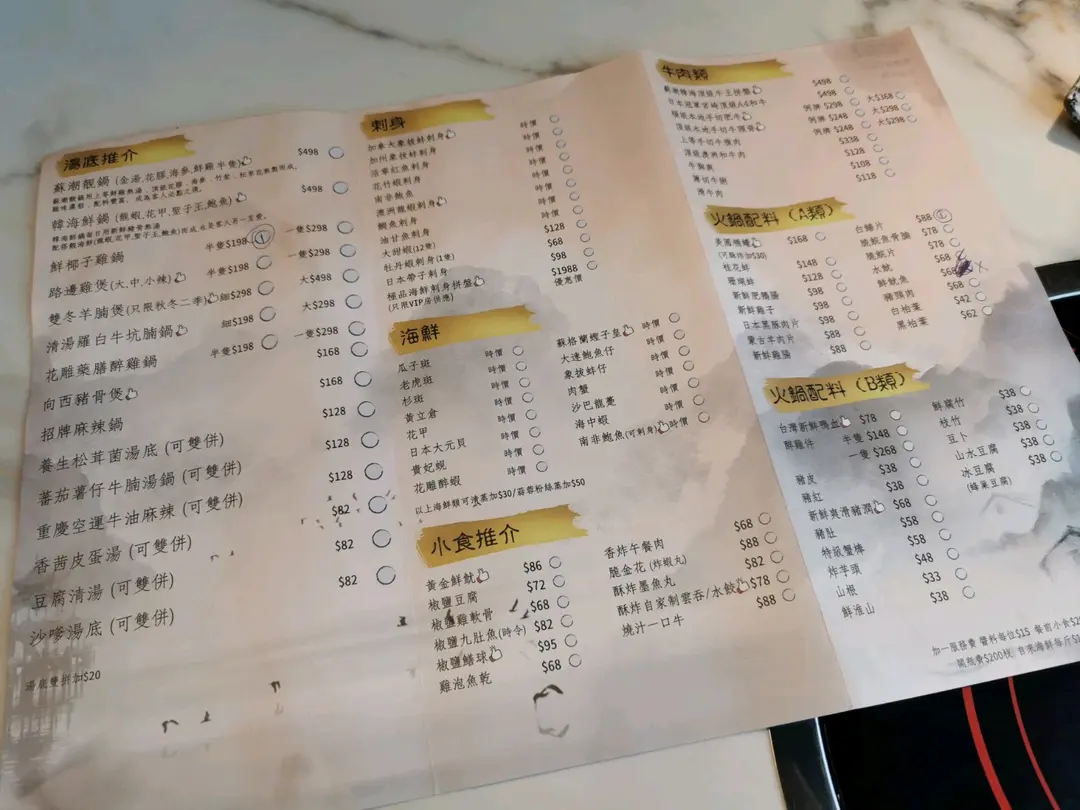 湯底推介
蘇潮靚鍋 (金湯,花膠,海參,鮮雞半隻) $498
韓海鮮鍋 (龍蝦,花甲,聖子王,鮑魚) $498
鮮椰子雞鍋 半隻$198 ① 一隻$298
路邊雞煲(大,中,小辣) 半隻$198 一隻$298
雙冬羊腩煲(只限秋冬二季) 細$298 大$498
清湯羅白牛坑腩鍋 細$198 大$298
花雕藥膳醉雞鍋 半隻$198 一隻$298
向西豬骨煲 $168
招牌麻辣鍋 $168
養生松茸菌湯底 (可雙併) $128
蕃茄薯仔牛腩湯鍋 (可雙併) $128
重慶空運牛油麻辣 (可雙併) $128
香茜皮蛋湯 (可雙併) $82
豆腐清湯 (可雙併) $82
沙嗲湯底 (可雙併) $82
湯底雙拼加$20
刺身
加拿大象拔蚌刺身 時價
加州象拔蚌刺身 時價
活章紅魚刺身 時價
花竹蝦刺身 時價
南非鮑魚 時價
澳洲龍蝦刺身 時價
鯛魚刺身 時價
油甘魚刺身 $128
大甜蝦(12隻) $68
牡丹蝦刺身(1隻) $98
日本帶子刺身 $1988
極品海鮮刺身拼盤 優惠價
(只限VIP房供應)
海鮮
瓜子斑 時價
老虎斑 時價
杉斑 時價
黃立倉 時價
花甲 時價
日本大元貝 時價
貴妃蜆 時價
花雕醉蝦 時價
蘇格蘭蟶子皇 時價
大連鮑魚仔 時價
象拔蚌仔 時價
肉蟹 時價
沙巴龍躉 時價
海中蝦 時價
南非鮑魚(可刺身) 時價
以上海鮮類可清蒸加$30/蒜蓉粉絲蒸加$50
小食推介
黃金鮮魷 $86
椒鹽豆腐 $72
椒鹽雞軟骨 $68
椒鹽九肚魚(時令) $82
椒鹽鱔球 $95
雞泡魚乾 $68
香炸午餐肉 $68
脆金花 (炸蝦丸) $88
酥炸墨魚丸 $82
酥炸自家制雲吞/水餃 $78
燒汁一口牛 $88
牛肉類
蘇潮韓海頂級牛王拼盤 $498
日本冠軍宮崎頂級A4和牛 $498
極級本地手切肥牛 例牌 $298 大$368
頂級本地手切牛頸脊 例牌 $248 大$298
上等手切牛頸肉 例牌 $248 大$298
頂級澳洲和牛肉 $338
牛胸爽 $128
薄切牛脷 $108
滑牛肉 $118
火鍋配料 (A類)
美國桶蠔 $168
(可酥炸加$30)
桂花蚌 $148
珊瑚蚌 $128
新鮮肥鵝腸 $98
新鮮雞子 $98
日本黑豚肉片 $98
蒙古羊肉片 $88
新鮮雞腸 $88
白鱔片 $88 ①
脆鯇魚骨腩 $78
脆鯇片 $78
水魷 $68
鮮魷魚 $68 X
豬頸肉 $68
白柏葉 $42
黑柏葉 $62
火鍋配料 (B類)
台灣新鮮鴨血 $78
醉雞件 半隻 $148
一隻 $268
豬皮 $38
豬紅 $38
新鮮爽滑豬潤 $68
豬肚 $58
特級蟹棒 $58
炸芋頭 $48
山根 $33
鮮淮山 $38
鮮腐竹 $38
枝竹 $38
豆卜 $38
山水豆腐 $38
冰豆腐 $38
(蜂巢豆腐)
加一服務費 醬料每位$15 餐前小食
開瓶費$200枝 自來海鮮每斤